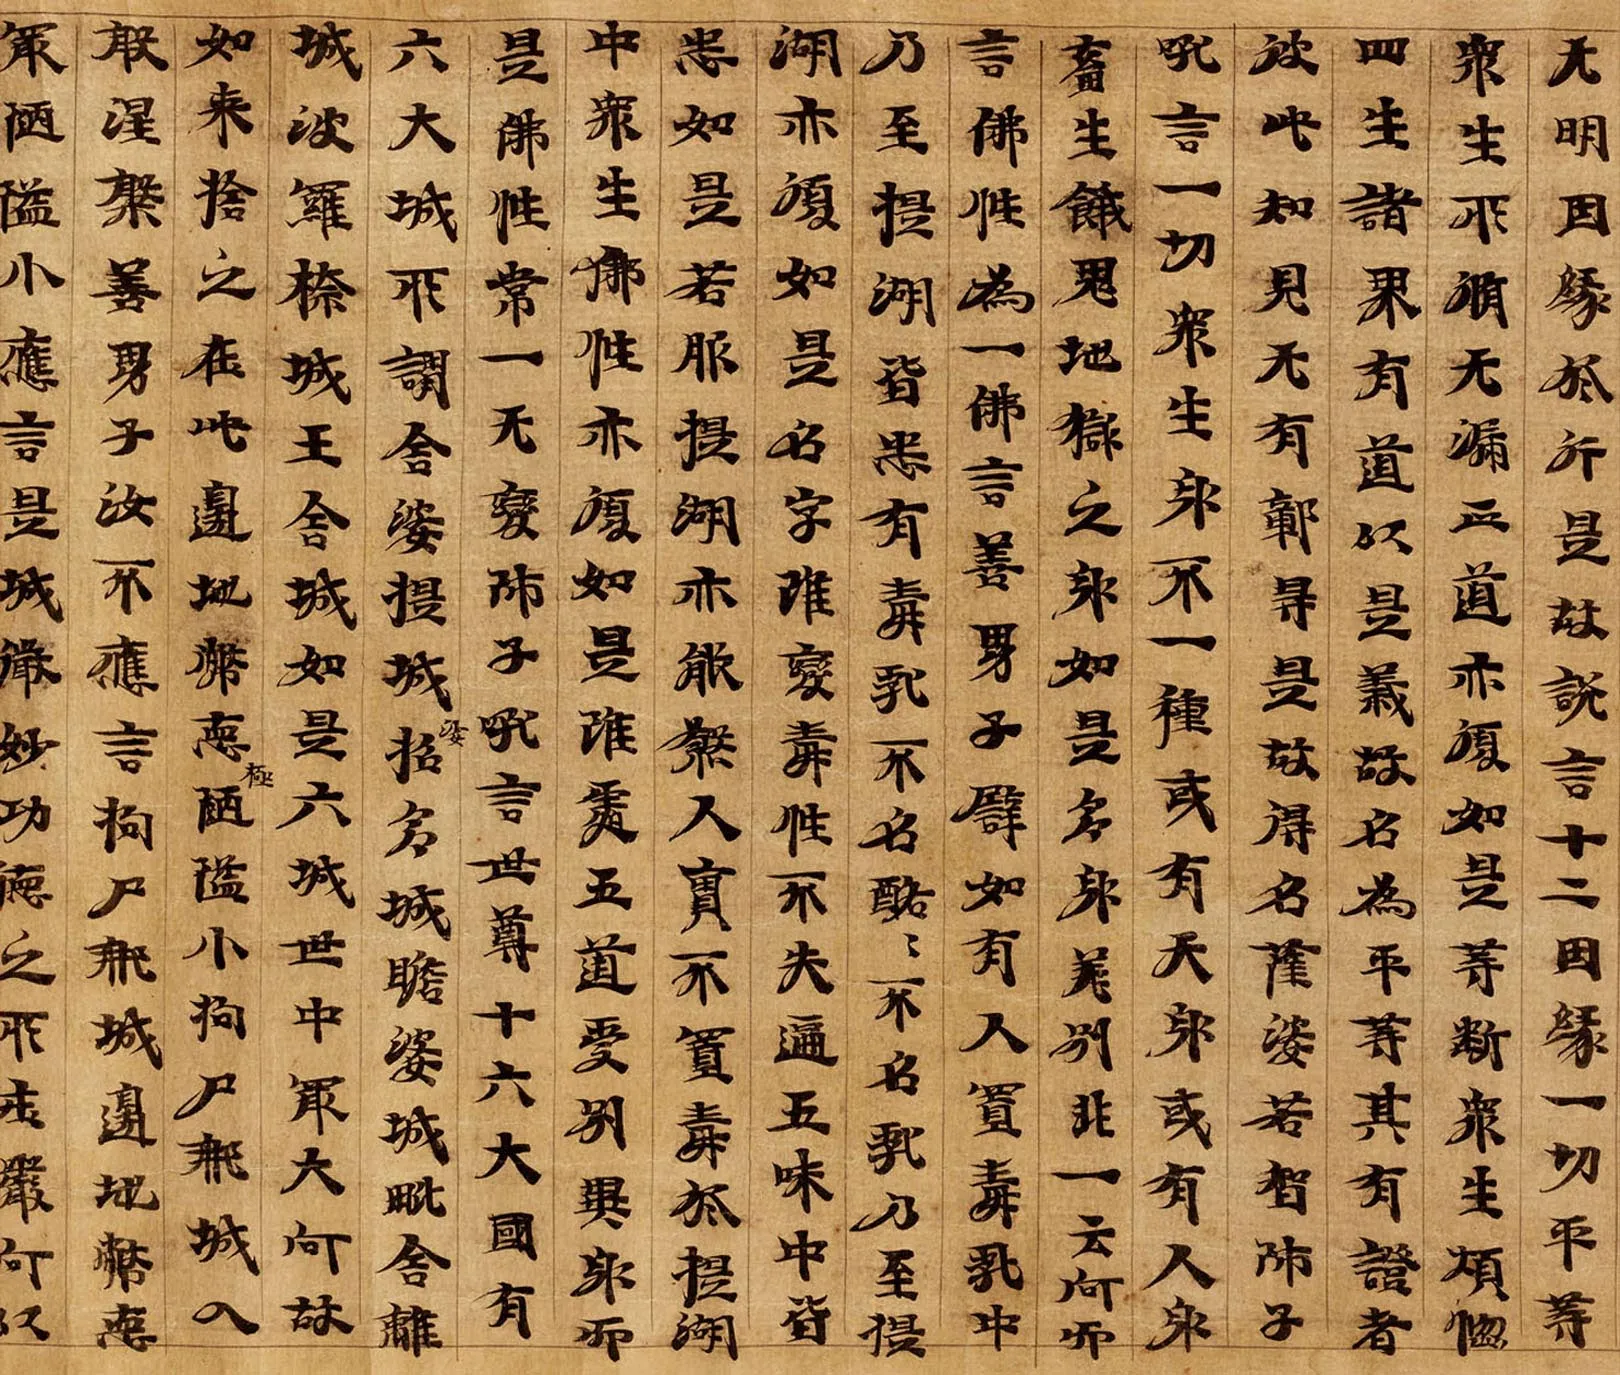 无明因緣於行是故說言十二因緣一切平等
衆生所脩无漏正道亦復如是等断衆生煩惱
四生諸界有道以是義故名為平等其有證者
彼此知見无有鄣导是故得名薩婆若智師子
吼言一切衆生身不一種或有天身或有人身
畜生餓鬼地獄之身如是多身差別非一云何而
言佛性為一佛言善男子譬如有人置毒乳中
乃至提湖皆悉有毒乳不名酪〻不名乳乃至提
湖亦復如是名字雖變毒性不失遍五味中皆
悉如是若服提湖亦能煞人實不置毒於提湖
中衆生佛性亦復如是雖處五道受別異身而
是佛性常一无變師子吼言世尊十六大國有
六大城所謂舍婆提城婆招多城瞻婆城毗舍離
城波羅捺城王舍城如是六城世中冣大何故
如来捨之在此邊地弊惡極陋隘小拘尸那城入
般涅槃善男子汝不應言拘尸那城邊地弊惡
冣陋隘小應言是城微妙功德之所庄嚴何以